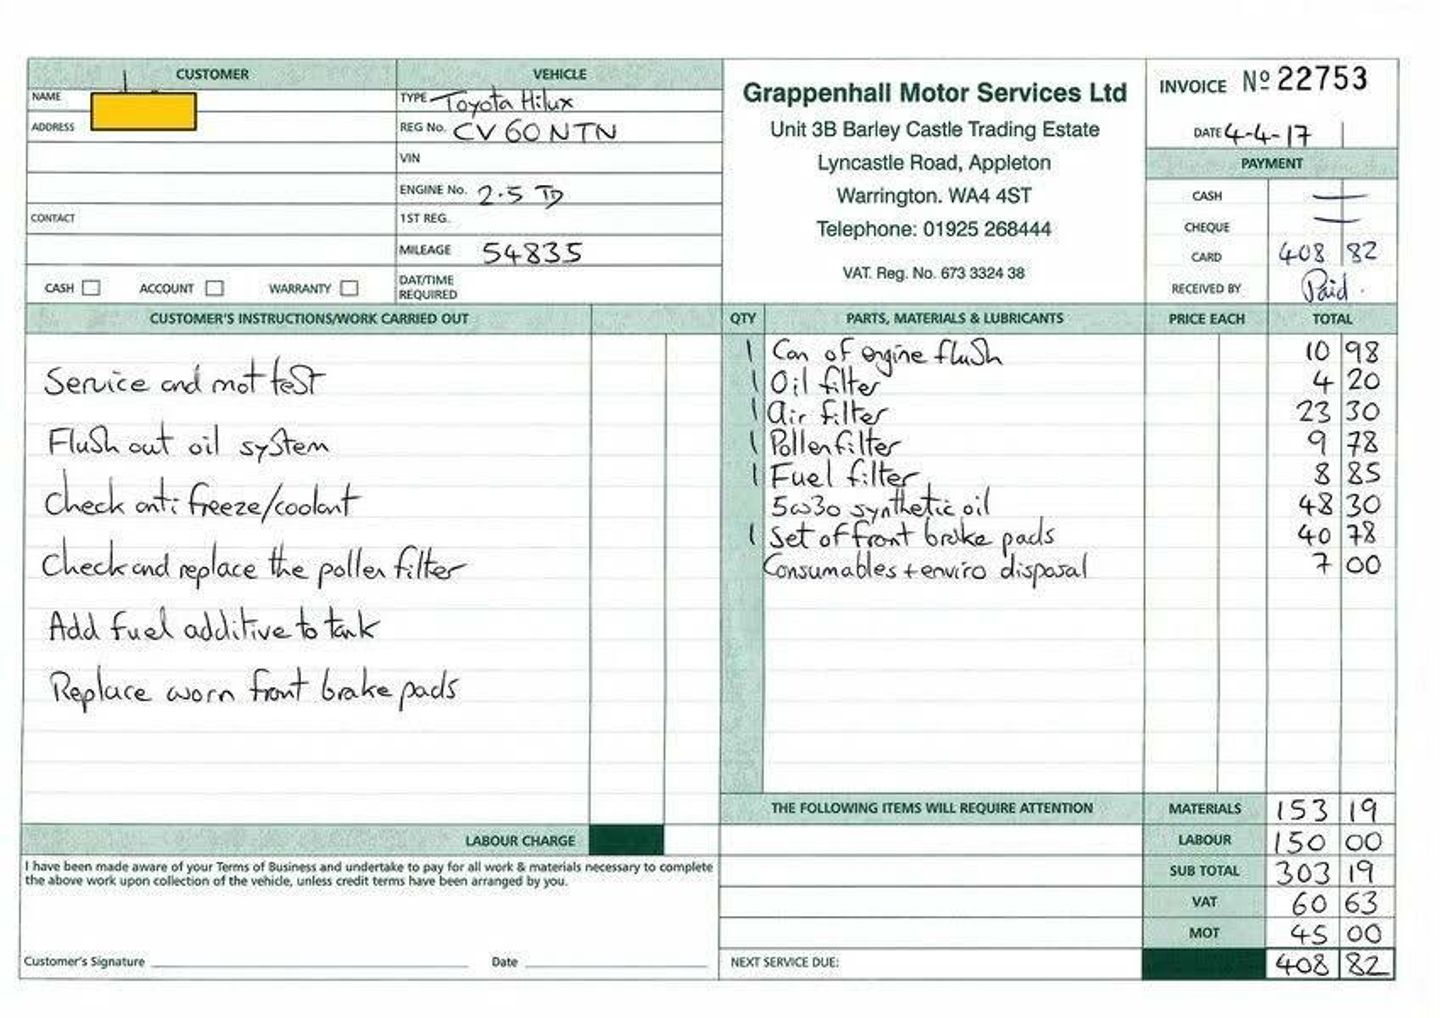 CUSTOMER
NAME
ADDRESS
CONTACT
CASH ACCOUNT WARRANTY
VEHICLE
TYPE Toyota Hilux
REG No. CV60 NTN
VIN
ENGINE No. 2.5 TD
1ST REG.
MILEAGE 54835
DAT/TIME
REQUIRED
Grappenhall Motor Services Ltd
Unit 3B Barley Castle Trading Estate
Lyncastle Road, Appleton
Warrington. WA4 4ST
Telephone: 01925 268444
VAT. Reg. No. 673 3324 38
INVOICE Nº 22753
DATE 4-4-17
PAYMENT
CASH —
CHEQUE —
CARD 408 82
RECEIVED BY Paid.
CUSTOMER'S INSTRUCTIONS/WORK CARRIED OUT
Service and mot test
Flush out oil system
Check anti freeze/coolant
Check and replace the pollen filter
Add fuel additive to tank
Replace worn front brake pads
LABOUR CHARGE
I have been made aware of your Terms of Business and undertake to pay for all work & materials necessary to complete
the above work upon collection of the vehicle, unless credit terms have been arranged by you.
Customer's Signature Date
QTY PARTS, MATERIALS & LUBRICANTS PRICE EACH TOTAL
1 Can of engine flush 10 98
1 Oil filter 4 20
1 Air filter 23 30
1 Pollen filter 9 78
1 Fuel filter 8 85
5w30 synthetic oil 48 30
1 Set of front brake pads 40 78
Consumables + enviro disposal 7 00
THE FOLLOWING ITEMS WILL REQUIRE ATTENTION
NEXT SERVICE DUE:
MATERIALS 153 19
LABOUR 150 00
SUB TOTAL 303 19
VAT 60 63
MOT 45 00
408 82